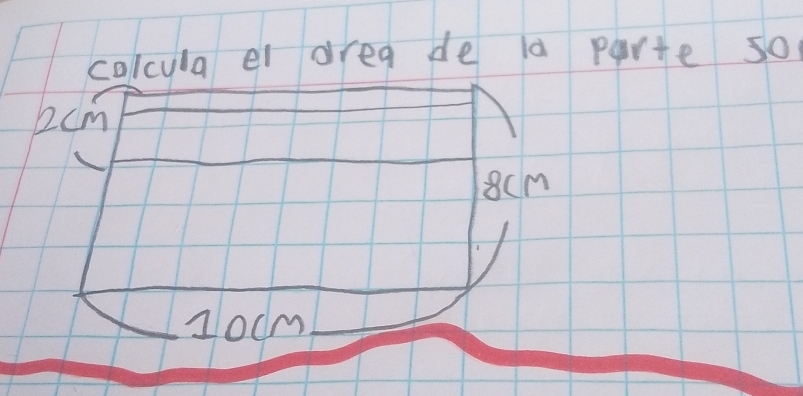 calcula el area de la parte
2cm
8cm
10cm